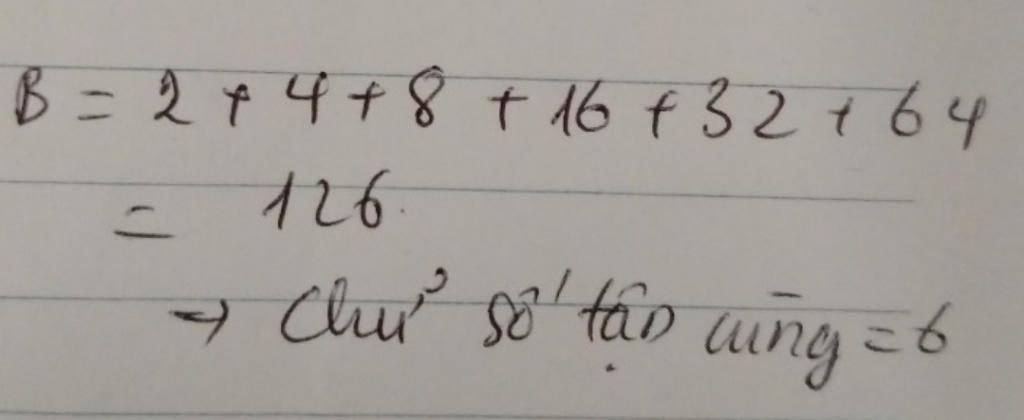 B = 2 + 4 + 8 + 16 + 32 + 64
= 126.
→ Chử số tận cūng = 6